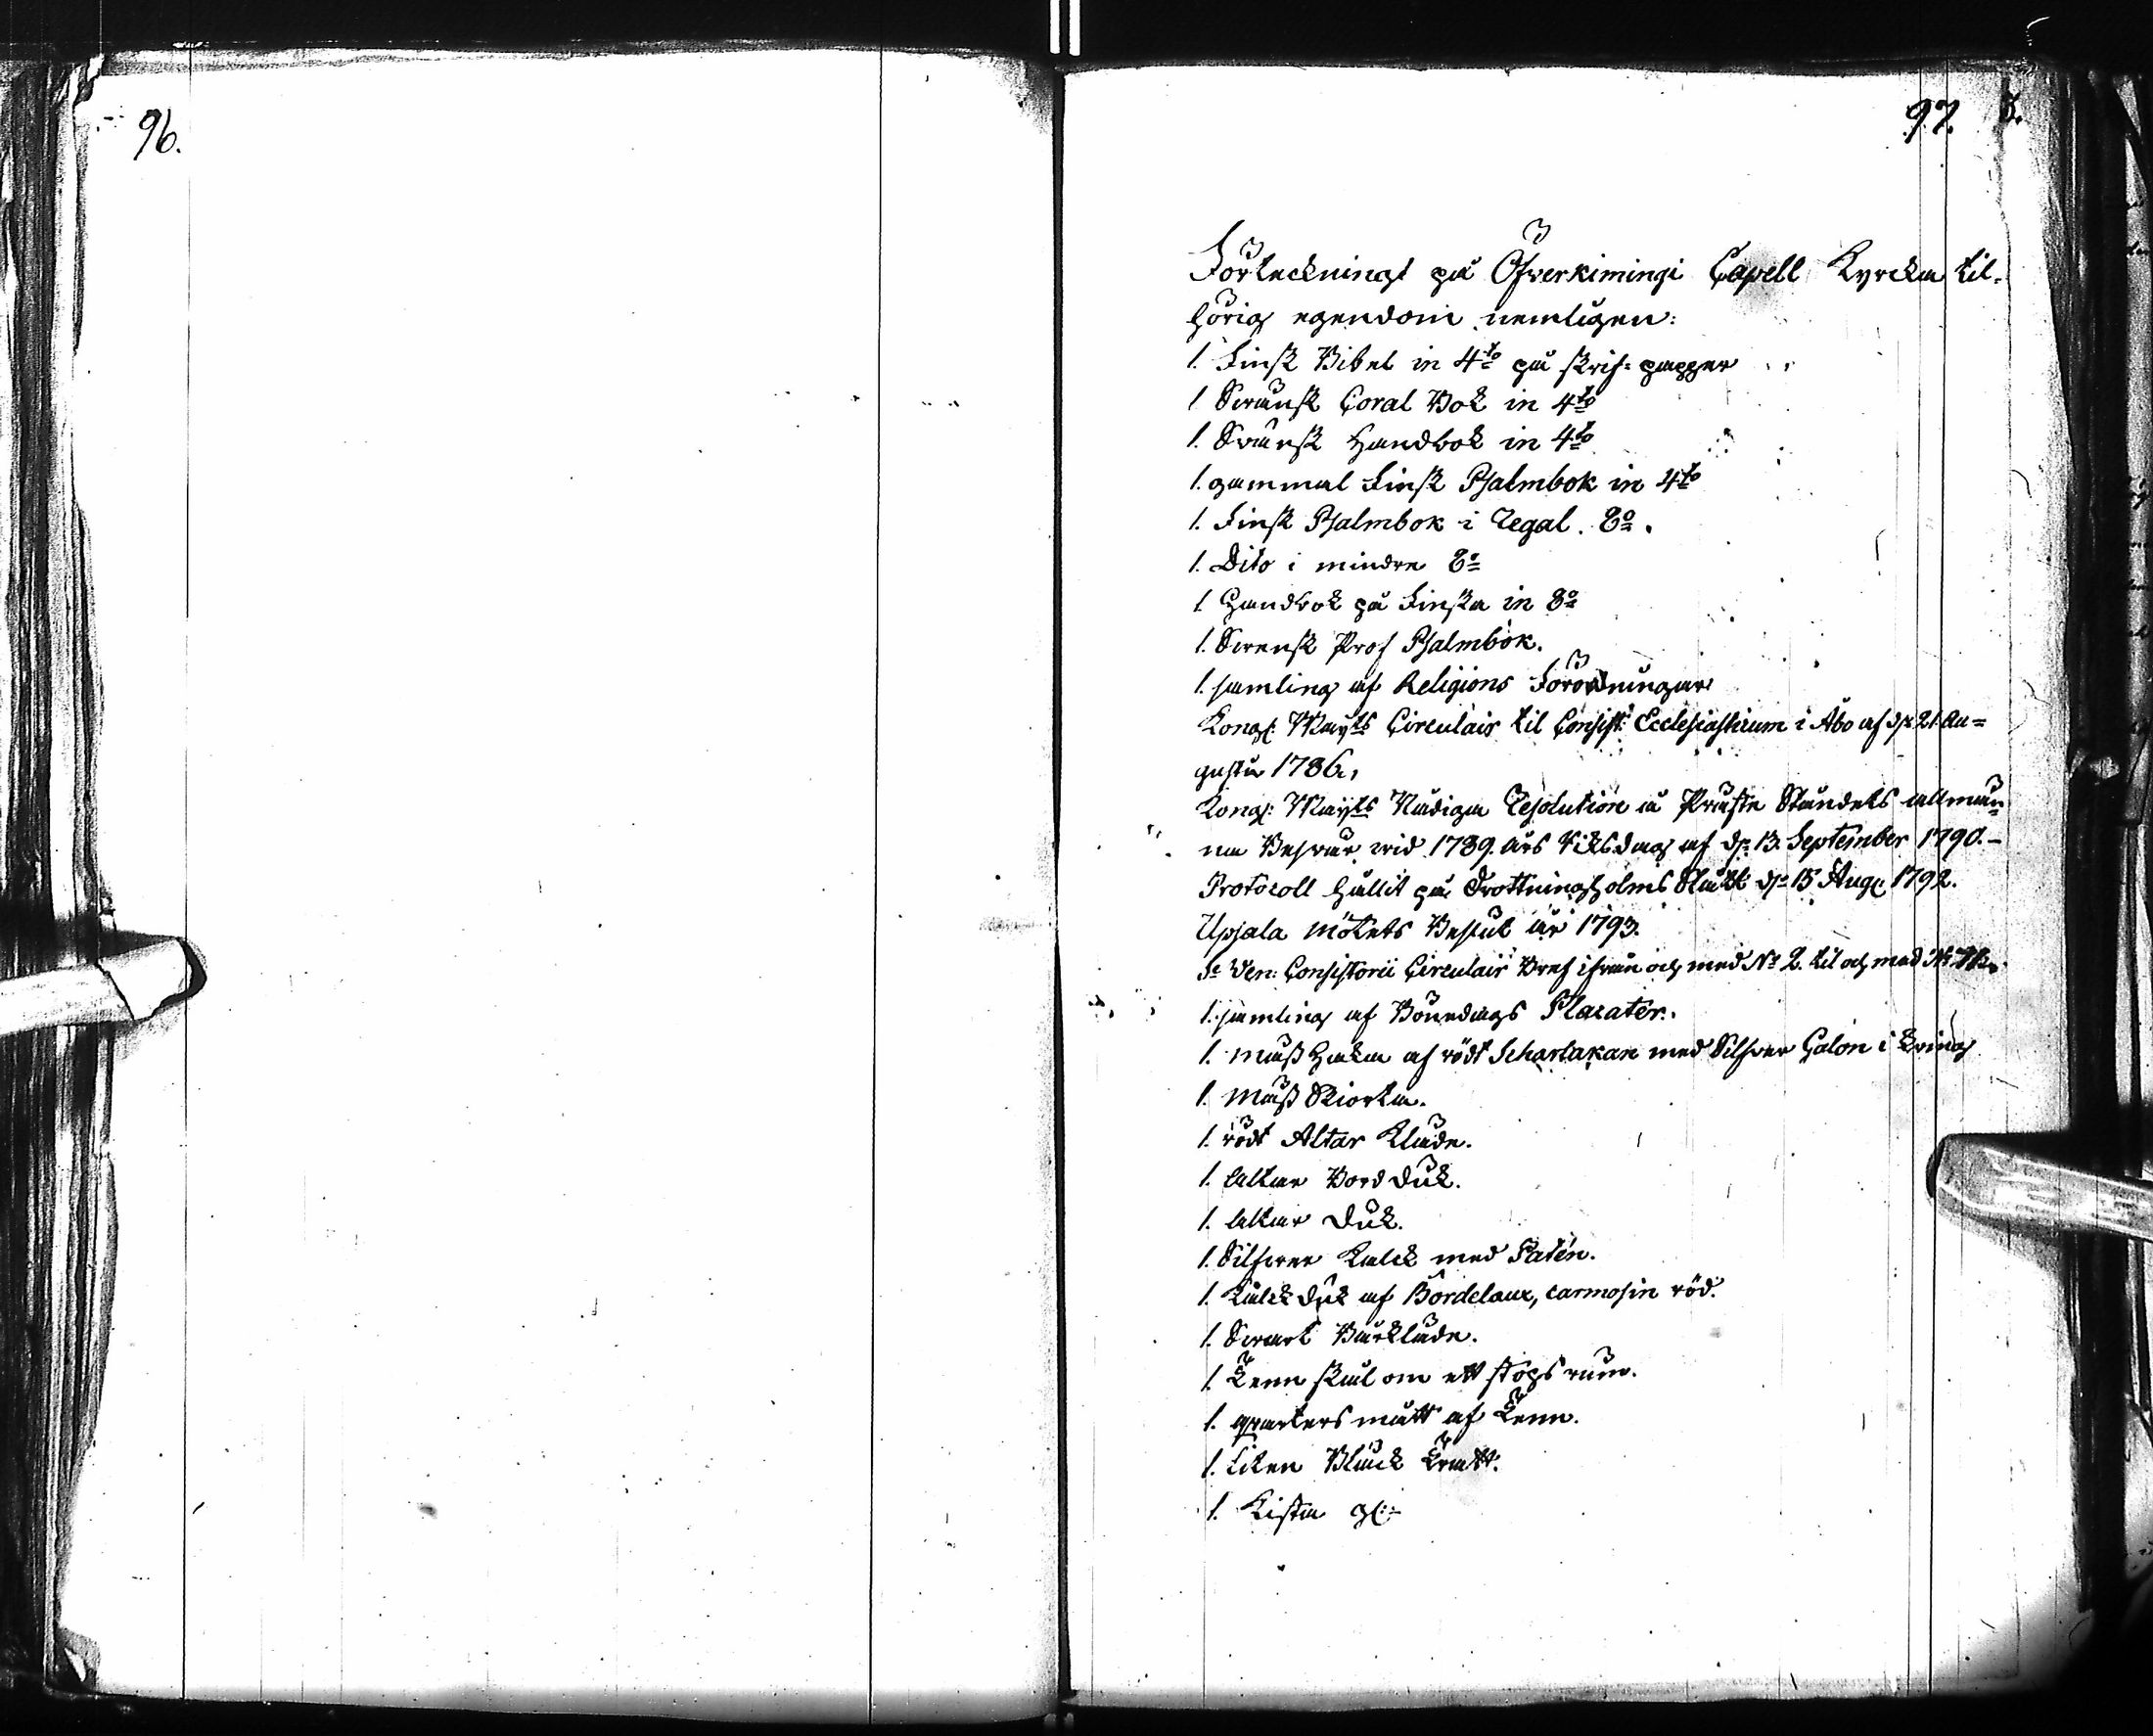 96.
97. 3.
Förteckningt på Öfwerkimingi Capell Kyrcka til-
hörig egendom nemligen:
1. Finsk Bibel in 4to på skrif-papper
1 Swänsk Coral Bok in 4to
1. Svänsk Handbok in 4to
1. gammal Finsk Psalmbok in 4to
1. Finsk Psalmbok i Regal. 8o.
1. Dito i mindre 8o
1 Handbok på Finska in 8o
1. Swensk Prof Psalmbok.
1. samling af Religions Förordningar
Kongl: Maijts Circulair til Consist: Ecclesiasticum i Åbo af d. 21. Au=
gusti 1786,
Kongl: Maijts Nådiga Resolution å Präste Ståndets allmän=
na Besvär wid 1789. års Riksdag af d. 13. September 1790.-
Protocoll hållit på Drottningholms Slått d. 15 Aug. 1792.
Upsala mötets Beslut år 1793.
Ven: Consistorii Circulair Bref ifrån och med No 2. til och med No
1. samling af Bönedags Placater.
1. mäss Haka af rödt Scharlakan med Silfver Galon i kring
1. mäss Skiorta.
1. rödt Altar Kläde.
1. altar Bord Duk.
1. altar Duk.
1. Silfwer Kalck med Patén.
1. Kalck duk af Bordelaux, carmosin röd.
1. Swart Bårkläde.
1. Tenn skål om ett stops rum.
1. quarters mått af Tenn.
1. Liten Bläck Tratt.
1. Kista